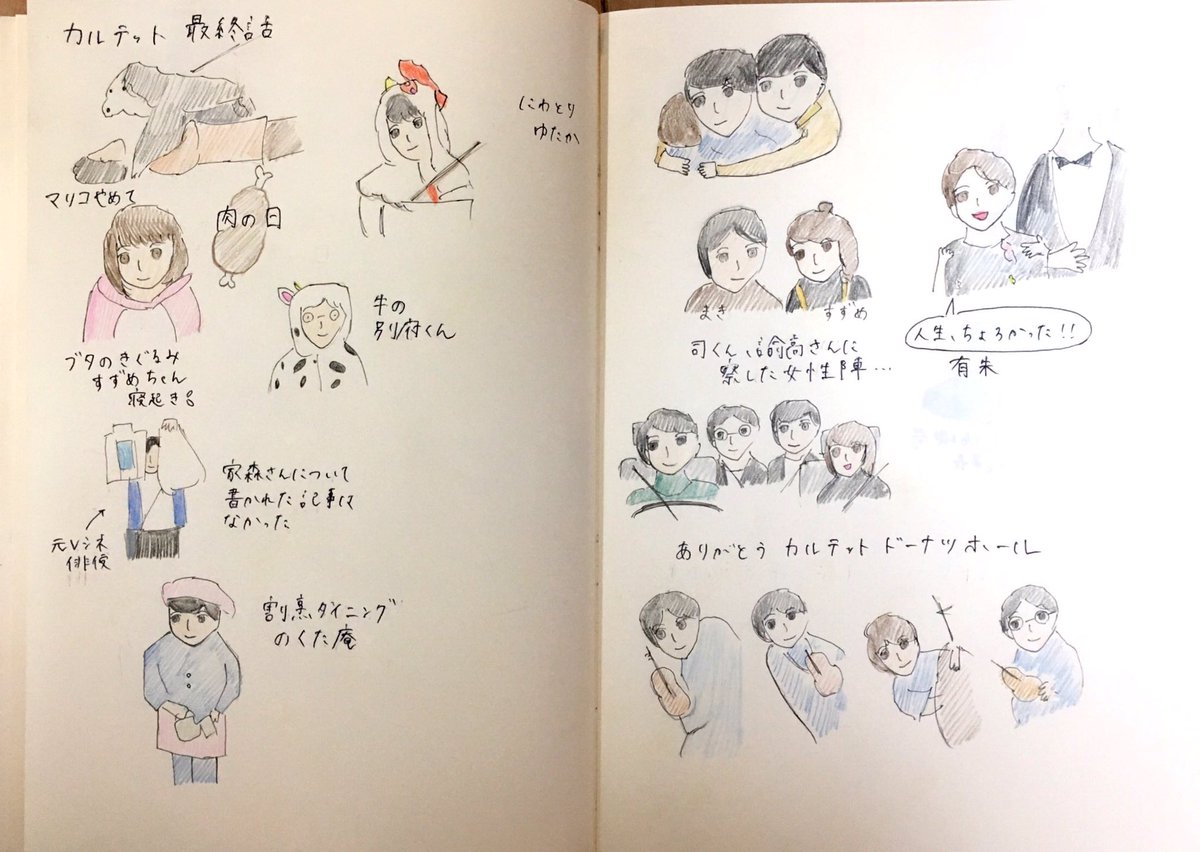 カルテット 最終話
にわとり
ゆたか
マリコやめて
肉の日
牛の
別府くん
ブタのきぐるみ
すずめちゃん
寝起き
家森さんについて
書かれた記事は
なかった
元Vシネ
俳優
割烹ダイニング
のくた庵
まき すずめ
司くん、諭高さんに
察した女性陣…
人生、ちょろかった!!
有朱
ありがとう カルテット ドーナツホール